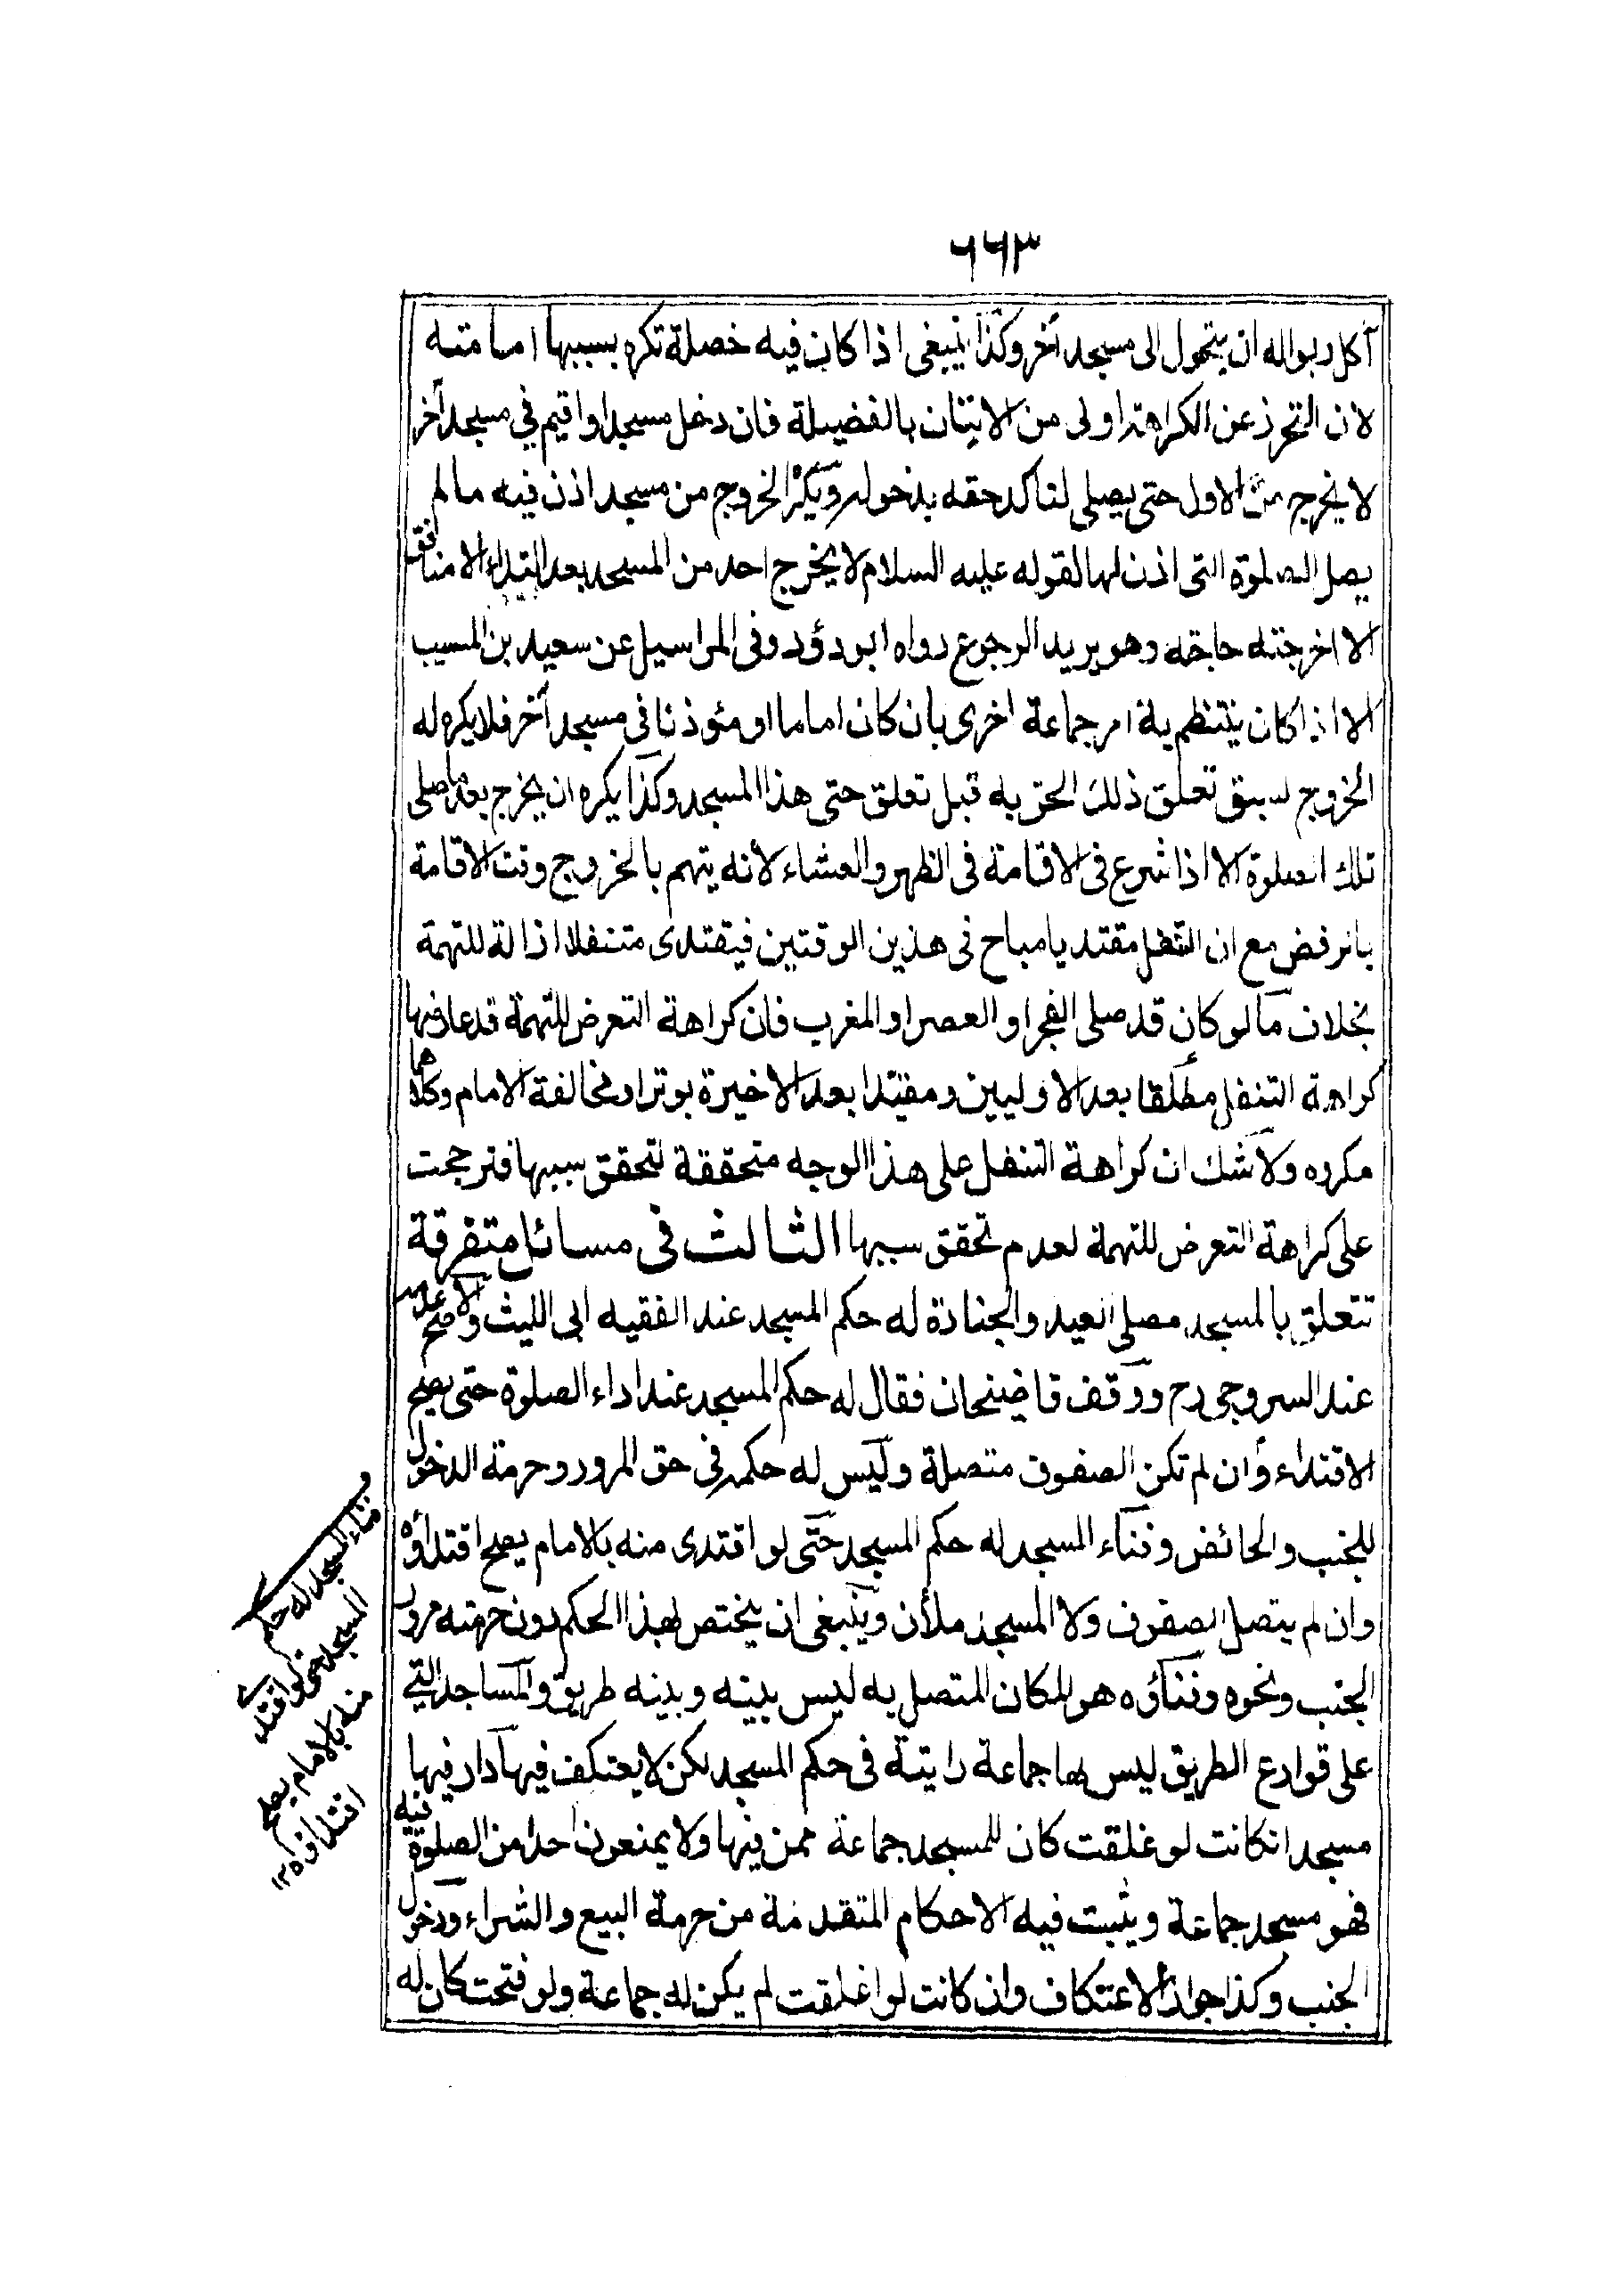 ٦٦٣
آكل ربوا له ان يتحول الى مسجد آخر وكذا ينبغى اذا كان فيه خصلة تكره بسببها امامته
لان التحرز عن الكراهة اولى من الاتيان بالفضيلة فان دخل مسجدا واقيم في مسجد آخر
لا يخرج من الاول حتى يصلى لتاكد حقه بدخوله ويكره الخروج من مسجد اذن فيه مالم
يصل الصلوة التى اذن لها لقوله عليه السلام لا يخرج احد من المسجد بعد النداء الا منافق
الا اخرجته حاجته وهو يريد الرجوع رواه ابو دؤد وفى المراسيل عن سعيد بن المسيب
الا اذا كان ينتظم به امر جماعة اخرى بان كان اماما او مئوذنا فى مسجد آخر فلا يكره له
الخروج لسبق تعلق ذلك الحق به قبل تعلق حتى هذا المسجد وكذا يكره ان يخرج بعد ماصلى
تلك الصلوة الا اذا شرع فى الاقامة فى الظهر والعشاء لانه يتهم بالخروج وقت الاقامة
بالرفض مع ان التنفل مقتديا مباح فى هذين الوقتين فيقتدى متنفلا ازالة للتهمة
بخلاف ما لو كان قد صلى الفجر او العصر او المغرب فان كراهة التعرض للتهمة قد عارضها
كراهة التنفل مطلقا بعد الاوليين ومقيدا بعد الاخيرة بوتر او مخالفة الامام وكلاهما
مكروه ولا شك ان كراهة التنفل على هذا الوجه متحققة لتحقق سببها فترجحت
على كراهة التعرض للتهمة لعدم تحقق سببها الثالث فى مسائل متفرقة
تتعلق بالمسجد مصلى العيد والجنازة له حكم المسجد عند الفقيه ابى الليث والاصح عدمه
عند السروجى رح ووقف قاضيخان فقال له حكم المسجد عند اداء الصلوة حتى يصح
الاقتداء وان لم تكن الصفوف متصلة وليس له حكمه فى حق المرور وحرمة الدخول
للجنب والحائض وفناء المسجد له حكم المسجد حتى لو اقتدى منه بالامام يصح اقتداؤه
وان لم يتصل الصفوف ولا المسجد ملأن وينبغى ان يختص لهذا الحكم دون حرمته مرور
الجنب ونحوه وفناؤه هو المكان المتصل به ليس بينه وبينه طريق والمساجد التى
على قوارع الطريق ليس لها جماعة راتبة فى حكم المسجد لكن لا يعتكف فيها دار فيها
مسجد انكانت لو غلقت كان للمسجد جماعة ممن فيها ولا يمنعون احدا من الصلوة فيه
فهو مسجد جماعة ويثبت فيه الاحكام المتقدمة من حرمة البيع والشراء ودخول
الجنب وكذا جواز الاعتكاف وان كانت لو اغلقت لم يكن له جماعة ولو فتحت كان له
و
فناء المسجد له حكم
المسجد حتى لو اقتدى
منه بالامام يصح
اقتداؤه ١٢